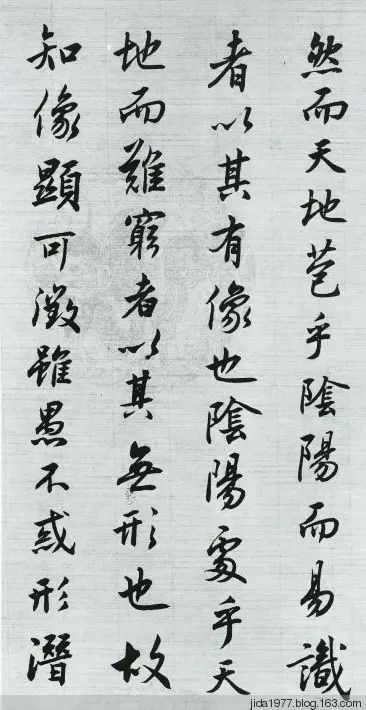 然而天地苞乎陰陽而易識
者以其有像也陰陽處乎天
地而難窮者以其無形也故
知像顯可徵雖愚不惑形潛
jida1977.blog.163.com